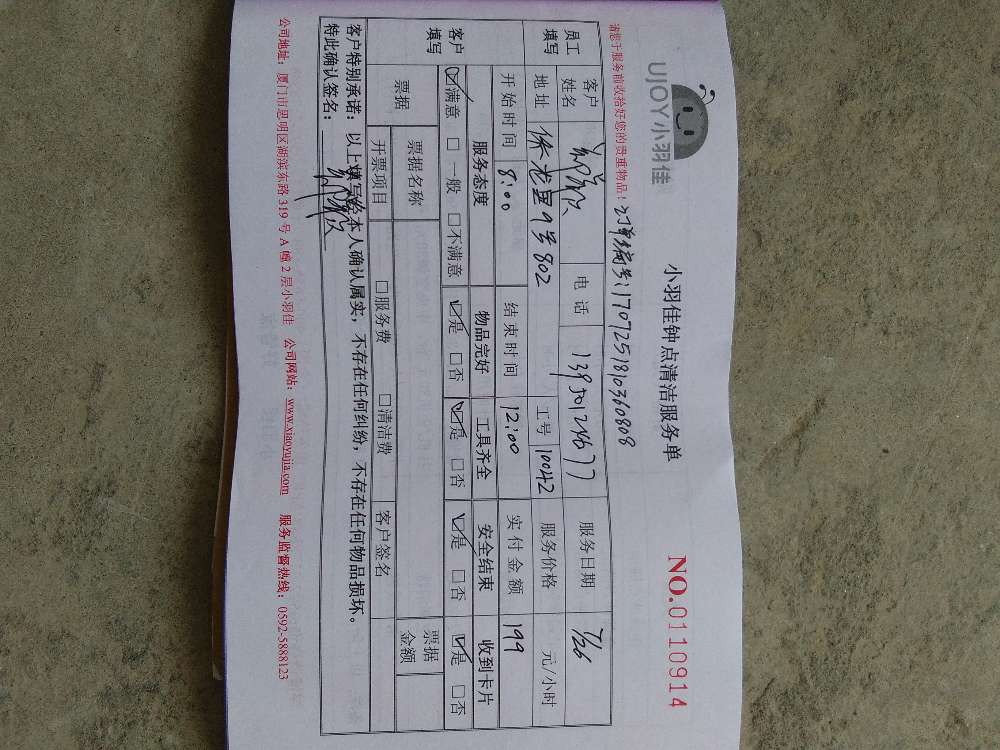 UJOY小羽佳
小羽佳钟点清洁服务单
NO.0110914
请您于服务前收拾好您的贵重物品! 订单编号:1707251810360808
员工填写 客户姓名 电话 服务日期 7/26
地址 9号802 工号 10042 服务价格 元/小时
开始时间 8:00 结束时间 12:00 实付金额 199
客户填写 服务态度 物品完好 工具齐全 安全结束 收到卡片
☑满意 □一般 □不满意 ☑是 □否 ☑是 □否 ☑是 □否 ☑是 □否
票据 票据名称 票据金额
开票项目 □服务费 □清洁费 客户签名
客户特别承诺: 以上填写经本人确认属实, 不存在任何纠纷, 不存在任何物品损坏。
特此确认签名:
公司地址: 厦门市思明区湖滨东路319号A幢2层小羽佳 公司网站: www.xiaoyujia.com 服务监督热线: 0592-5888123